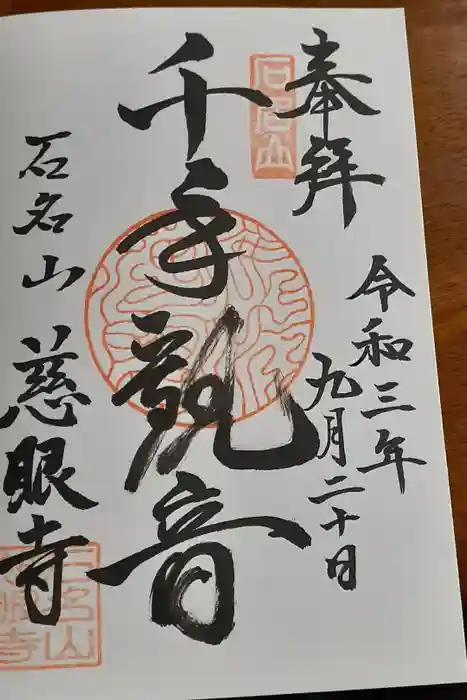 奉拝
令和三年
九月二十日
石名山
千手観音
石名山 慈眼寺